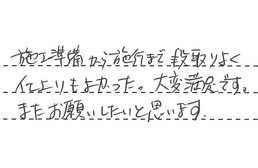 施工準備から施行まで段取りよく
仕上りもよかった。大変満足です。
またお願いしたいと思います。